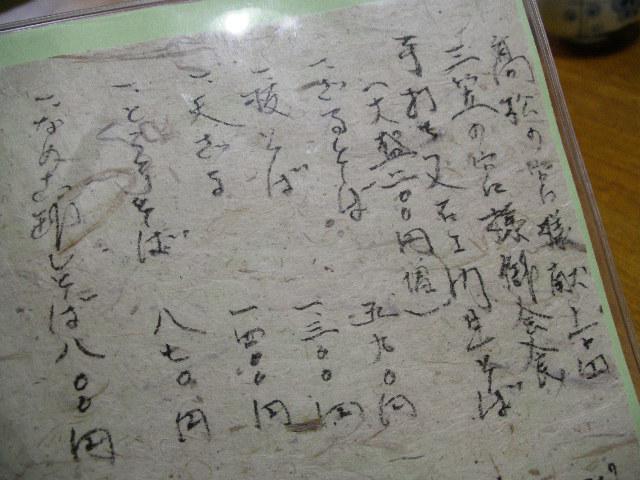 高松の宮様献上品
三笠の宮様御会食
手打ち又右エ門生そば
(大盛二〇〇円値)
一、ざるそば 五九〇円
一、板そば 一三〇〇円
一、天ざる 一四〇〇円
一、とろろそば 八七〇円
一、なめこ卸しそば 八〇〇円